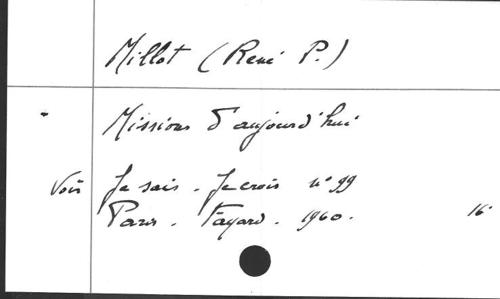 Millot (René P.)
Missions d'aujourd'hui
Voir Je sais. Je crois n° 99
Paris. Fayard. 1960. 16°